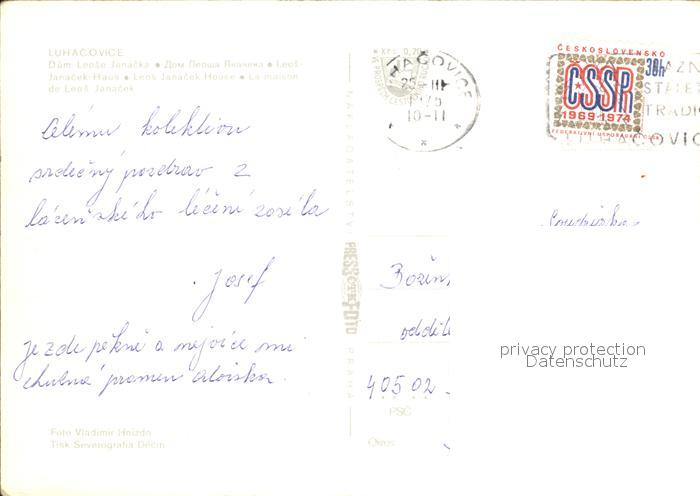 LUHAČOVICE
Dům Leoše Janáčka • Дом Леоша Яначека • Leoš-
Janáček-Haus • Leoš Janáček House • La maison
de Leoš Janáček
Celému kolektivu
srdečný pozdrav z
lázeňského léčení zasílá
Josef
Je zde pěkně a nejvíce mi
chutná pramen
Foto Vladimír Hnízdo
Tisk Severografia Děčín
PRESSFOTO
PRAHA
Kčs 0,70
HAČOVICE
75
10-11
ČESKOSLOVENSKO
30h
ČSSR
1969-1974
FEDERATIVNÍ USPOŘÁDÁNÍ ČSSR
LÁZN
TRADIC
LUHAČOVIC
Soudružka
Božen
odděl
405 02
PSČ
Okres
privacy protection
Datenschutz